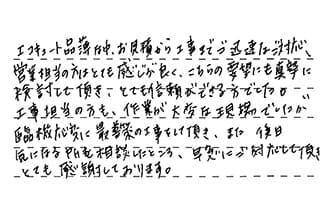 エコキュート品薄の中、お見積から工事までご迅速に対応、
営業担当の方はとても感じが良く、こちらの要望にも真摯に
検討して頂き、とても信頼ができる方でした。
工事担当の方も、作業が大変な現場でしたが
臨機応変に最善策の工事をして頂き、また後日
気になる所を相談したところ、早急にご対応して頂き
とても感謝しております。